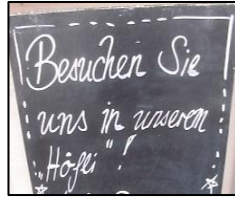 Besuchen Sie
uns in unserem
"Höfli"!